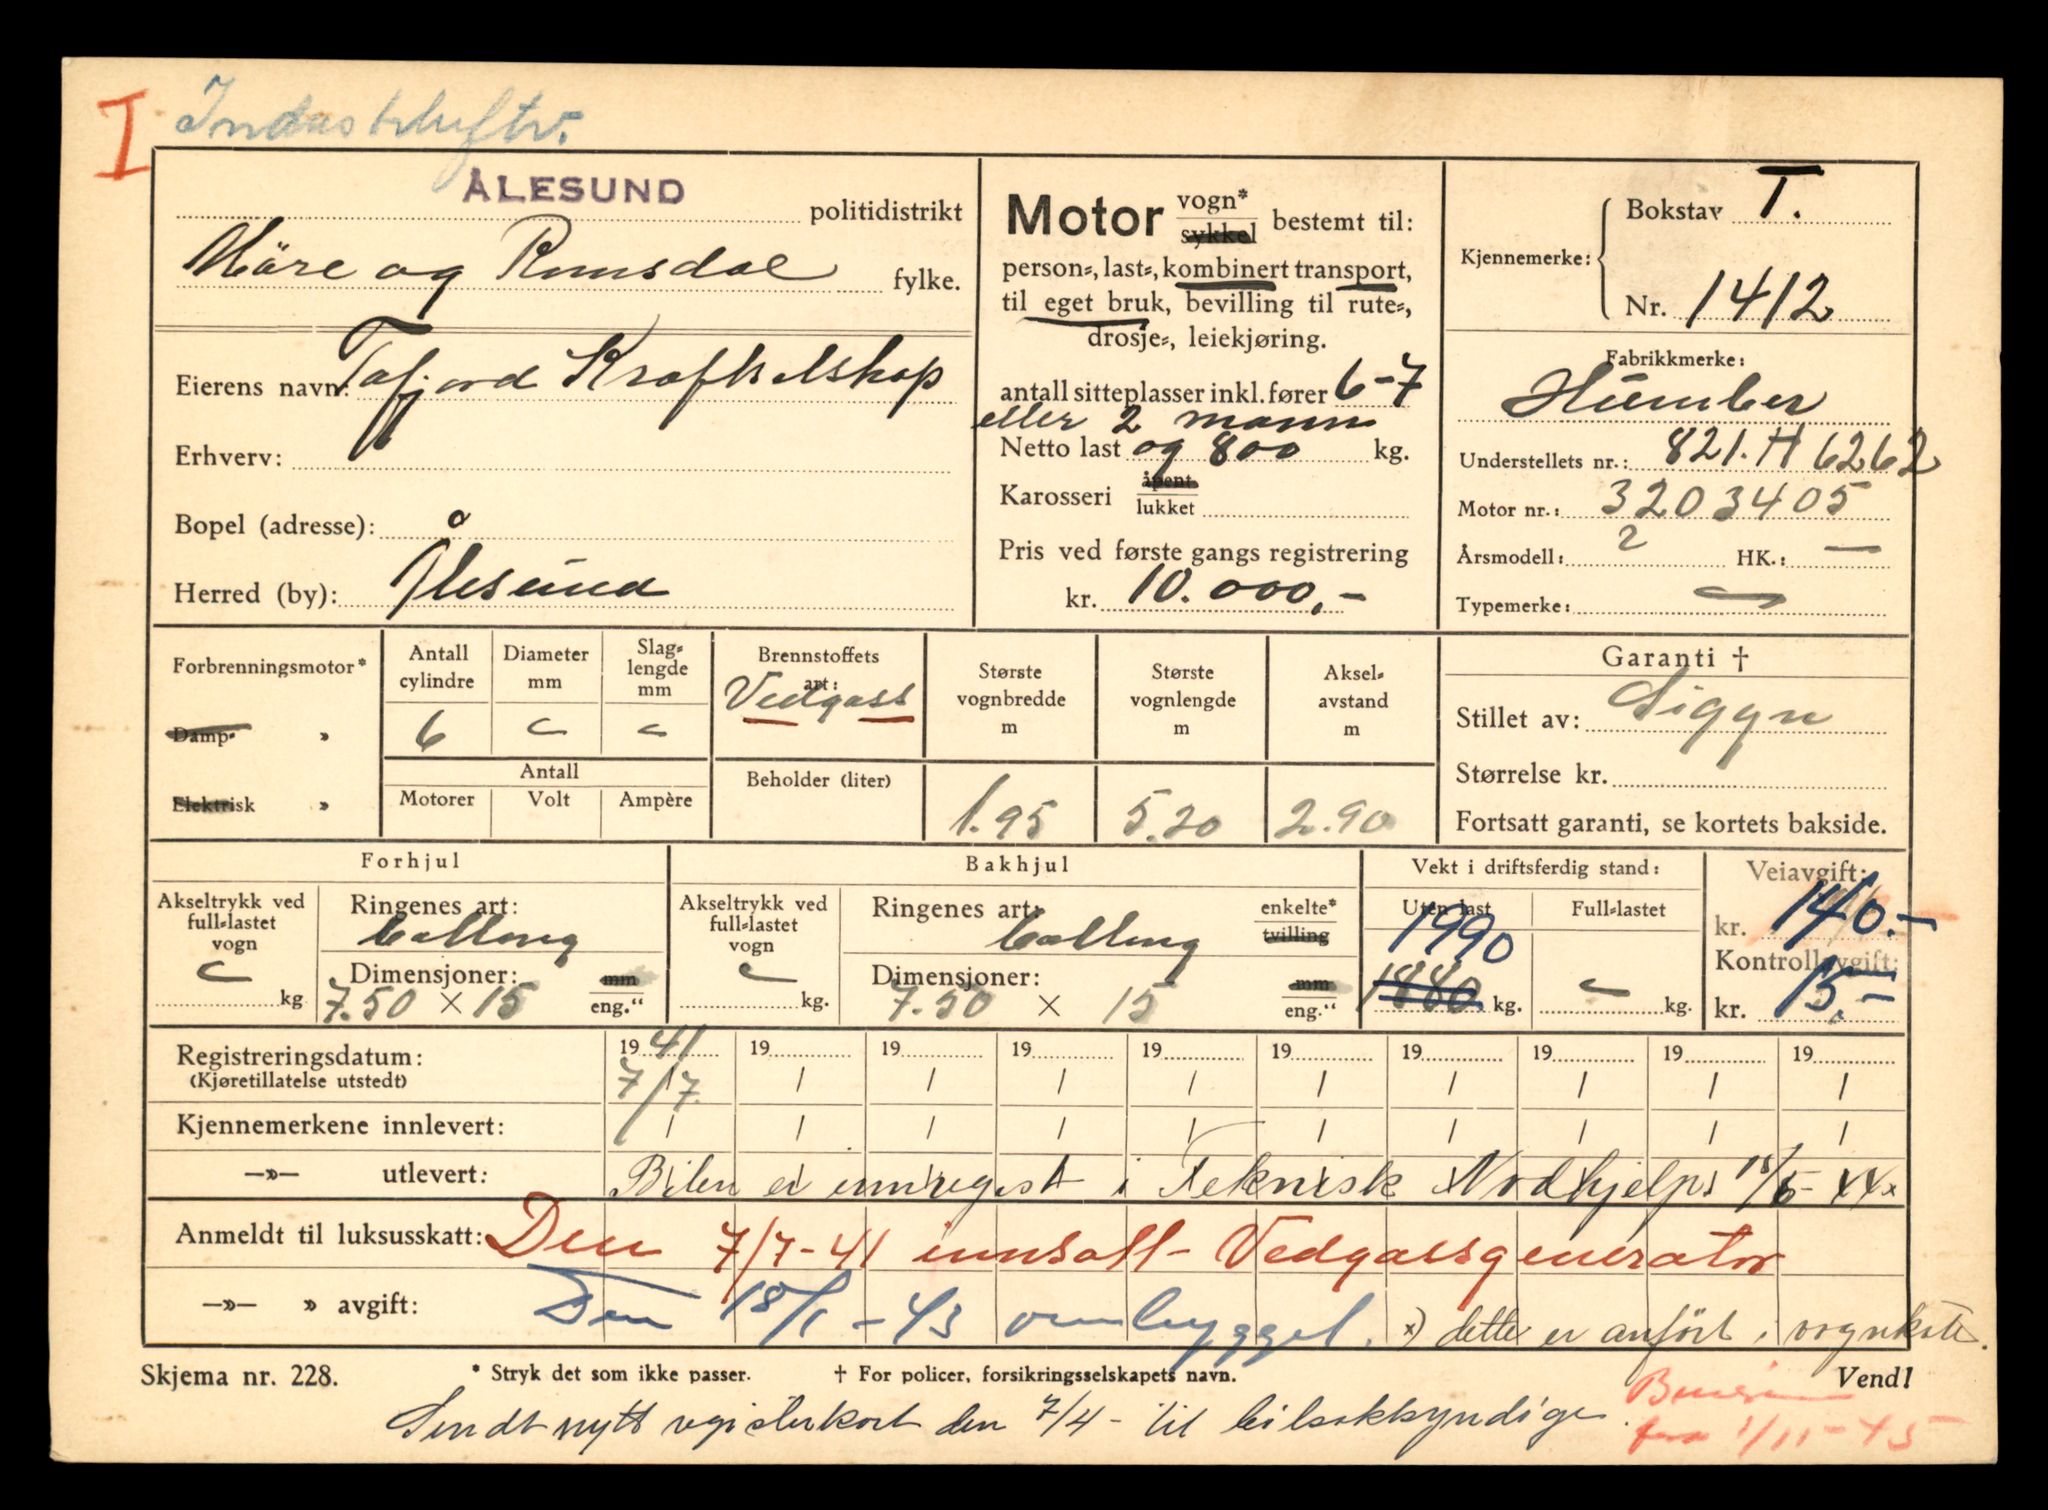 I Industriluftv.
ÅLESUND politidistrikt
Møre og Romsdal fylke.
Eierens navn: Tafjord Kraftselskap
Erhverv:
Bopel (adresse):
Herred (by): Ålesund
Motor vogn* sykkel bestemt til:
person-, last-, kombinert transport,
til eget bruk, bevilling til rute-,
drosje-, leiekjøring.
antall sitteplasser inkl. fører 6-7
eller 2 mann
Netto last og 800 kg.
Karosseri åpent lukket
Pris ved første gangs registrering
kr. 10.000,-
Kjennemerke: Bokstav T.
Nr. 1412
Fabrikkmerke:
Humber
Understellets nr.: 821.H 6262
Motor nr.: 3203405
Årsmodell: ? HK.: —
Typemerke: —
Forbrenningsmotor*
Damp- »
Elektrisk »
Antall cylindre
6
Diameter mm
Slag-lengde mm
Antall
Motorer Volt Ampère
Brennstoffets art:
Vedgass
Beholder (liter)
Største vognbredde m
1.95
Største vognlengde m
5.20
Aksel-avstand m
2.90
Garanti †
Stillet av: Sigyn
Størrelse kr.
Fortsatt garanti, se kortets bakside.
Forhjul
Akseltrykk ved full-lastet vogn
kg
Ringenes art: ballong
Dimensjoner: mm
7.50 × 15 eng."
Bakhjul
Akseltrykk ved full-lastet vogn
kg.
Ringenes art: ballong enkelte* tvilling
Dimensjoner: mm
7.50 × 15 eng."
Vekt i driftsferdig stand:
Uten last Full-lastet
1990
1880 kg. kg.
Veiavgift:
kr. 140.-
Kontrollavgift:
kr. 15.-
Registreringsdatum: 19 41 19 19 19 19 19 19 19 19 19
(Kjøretillatelse utstedt) 7/7 / / / / / / / / /
Kjennemerkene innlevert: / / / / / / / / / /
—»— utlevert: Bilen er innregist i Teknisk Nødhjelp 15/6-44 x
Anmeldt til luksusskatt: Den 7/7-41 innsatt Vedgassgenerator
—»— » avgift: Den 18/1-43 ombygget. x) dette er anført i vognkort.
Skjema nr. 228. * Stryk det som ikke passer. † For policer, forsikringsselskapets navn. Vend!
Sendt nytt registerkort den 7/4 - til bilsakkyndige.
Bensin
fra 1/11-45